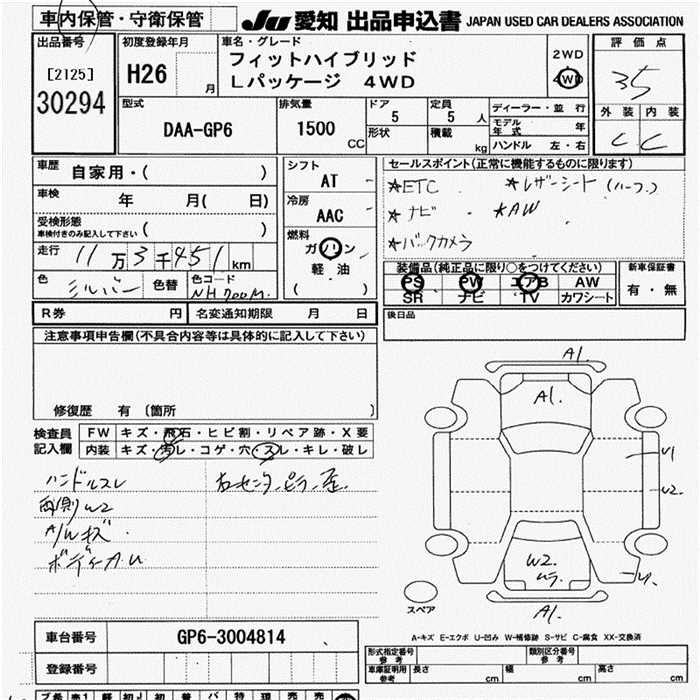 車内保管・守衛保管
JU 愛知 出品申込書 JAPAN USED CAR DEALERS ASSOCIATION
出品番号
[2125]
30294
初度登録年月
H26
月
車名・グレード
フィットハイブリッド
Lパッケージ 4WD
2WD
4WD
評価点
35
外装 内装
C C
型式
DAA-GP6
排気量
1500
CC
ドア
5
定員
5 人
形状
積載
kg
ディーラー・並行
モデル年式 年
ハンドル 左・右
車歴 自家用・( )
車検 年 月( 日)
受検形態
車検付きのみ記入して下さい ( )
走行 11万3千451km
色 シルバー 色替 色コード NH700M
シフト
AT
冷房
AAC
燃料
ガソリン
軽油
( )
セールスポイント(正常に機能するものに限ります)
★ETC ★レザーシート(ハーフ)
★ナビ ★AW
★バックカメラ
装備品(純正品に限り○をつけてください)
PS PW エアB AW
SR ナビ TV カワシート
新車保証書
有・無
R券 円 名変通知期限 月 日
後日品
注意事項申告欄(不具合内容等は具体的に記入して下さい)
修復歴 有 〔箇所 〕
検査員
記入欄
FW キズ・飛石・ヒビ割・リペア跡・X要
内装 キズ・汚レ・コゲ・穴・スレ・キレ・破レ
ハンドルスレ
両側W2
A/Wキズ
ボディA.U
右センターピラー歪
A1.
A1.
U1
W2.
W2.
ムラ.
U1.
A1.
スペア
A-キズ E-エクボ U-凹み W-補修跡 S-サビ C-腐食 XX-交換済
車台番号 GP6-3004814
登録番号
形式指定番号
参考
類別区分番号
参考
車庫証明用
参考
長さ cm 幅 cm 高さ cm